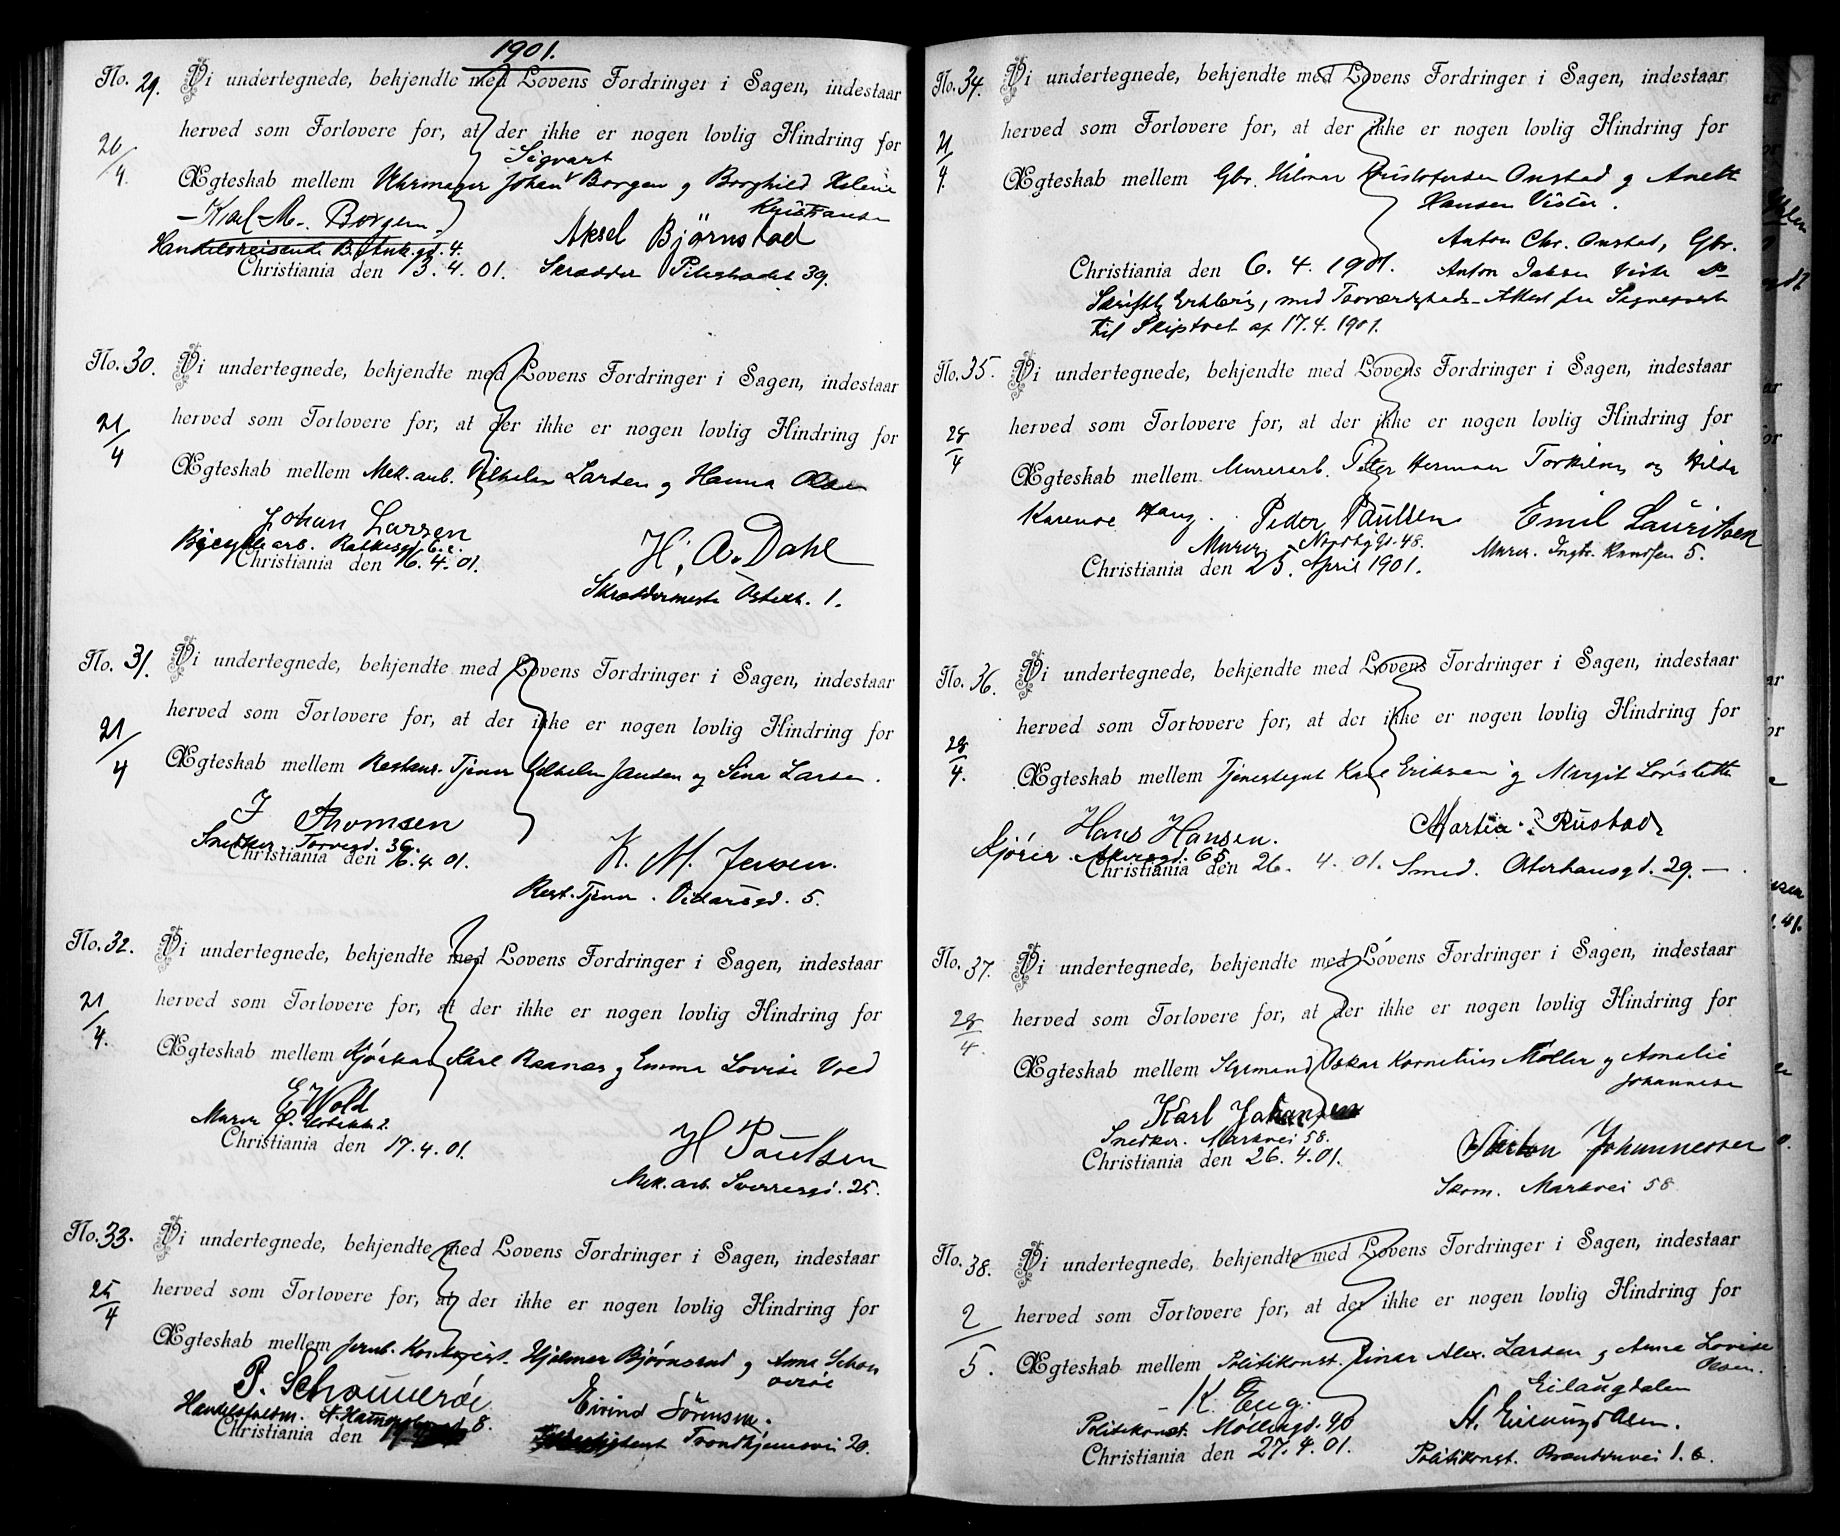 1901.
No. 29. Vi undertegnede, bekjendte med Lovens Fordringer i Sagen, indestaar
20/4. herved som Forlovere for, at der ikke er nogen lovlig Hindring for
Sigvart
Ægteskab mellem Uhrmager Johan Borgen og Borghild Helene
Kristiansen
Karl M. Borgen. Aksel Bjørnstad
Handelsreisende 4.
Christiania den 13.4.01. Skrædder Pilestrædet 39.
No. 30. Vi undertegnede, bekjendte med Lovens Fordringer i Sagen, indestaar
21/4 herved som Forlovere for, at der ikke er nogen lovlig Hindring for
Ægteskab mellem Mek. arb. Vilhelm Larsen og Hanna Olsen
Johan Larsen H. A. Dahl
arb.
Christiania den 16.4.01.
Skræddermester 1.
No. 31. Vi undertegnede, bekjendte med Lovens Fordringer i Sagen, indestaar
21/4 herved som Forlovere for, at der ikke er nogen lovlig Hindring for
Ægteskab mellem Restaur. Tjener Vilhelm Jansen og Sina Larsen.
J Thomsen
Snedker. Torvegd. 36.
Christiania den 16.4.01. K. M. Jensen.
Rest. Tjener. Vidarsgd. 5.
No. 32. Vi undertegnede, bekjendte med Lovens Fordringer i Sagen, indestaar
21/4. herved som Forlovere for, at der ikke er nogen lovlig Hindring for
Ægteskab mellem Karl Raanæs og Emma Lovise Vold
E Wold
Murer
Christiania den 17.4.01. H Paulsen
Mek. arb. Sverresgd. 25.
No. 33. Vi undertegnede, bekjendte med Lovens Fordringer i Sagen, indestaar
25/4 herved som Forlovere for, at der ikke er nogen lovlig Hindring for
Ægteskab mellem Jernb. Hjalmar Bjørnsrud og Anna Schou
P. Schouverøe Eivind Sørensen.
8.
Christiania den Trondhjemsvei 20.
No. 34. Vi undertegnede, bekjendte med Lovens Fordringer i Sagen, indestaar
21/4. herved som Forlovere for, at der ikke er nogen lovlig Hindring for
Ægteskab mellem Gbr. Hilmar Kristofersen Onstad og Anette
Hansen Vister.
Anton Chr. Onstad, Gbr.
Christiania den 6.4.1901. Anton
Skriftlig Erklæring, med Troværdigheds-Attest fra
til Skiptvet af 17.4.1901.
No. 35. Vi undertegnede, bekjendte med Lovens Fordringer i Sagen, indestaar
28/4 herved som Forlovere for, at der ikke er nogen lovlig Hindring for
Ægteskab mellem Murerarb. Peter Herman Torkilsen og Hilda
Karense Haug. Peder Paulsen Emil Lauritsen
Murer Nordbygd. 48. Murer. Knudsen 5.
Christiania den 25. April 1901.
No. 36. Vi undertegnede, bekjendte med Lovens Fordringer i Sagen, indestaar
28/4. herved som Forlovere for, at der ikke er nogen lovlig Hindring for
Ægteskab mellem Karl Eriksen og Margit
Hans Hansen. Martin Rustad
Kjører. Akersgd. 65.
Christiania den 26. 4. 01. Smed. 29.
No. 37. Vi undertegnede, bekjendte med Lovens Fordringer i Sagen, indestaar
28/4. herved som Forlovere for, at der ikke er nogen lovlig Hindring for
Ægteskab mellem Styrmand Oskar Kornelius Møller og Amalie
Johannesen
Karl Johansen
Snedker. Markvei 58.
Christiania den 26.4.01. Johannessen
Skom. Markvei 58
No. 38. Vi undertegnede, bekjendte med Lovens Fordringer i Sagen, indestaar
2/5. herved som Forlovere for, at der ikke er nogen lovlig Hindring for
Ægteskab mellem Politikonst. Einar Alex. Larsen og Anna Lovise
Olsen.
K. Eng. Eilaugdalen
Politikonst. Møllergd. 40
Christiania den 27.4.01. Politikonst. 1.